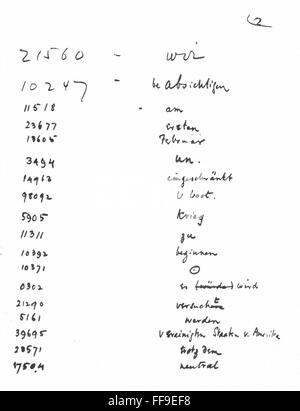 2
21560 - wir
10247 - beabsichtigen
11518 - am
23677 ersten
13605 Februar
3494 un.
14963 eingeschränkt
98092 U boot.
5905 Krieg
11311 zu
10392 beginnen
10371 ⊙
0302 es wird
21290 versucht
5161 werden
39695 Vereinigten Staaten v. Amerika
23571 trotzdem
17504 neutral
alamy
FF9EF8